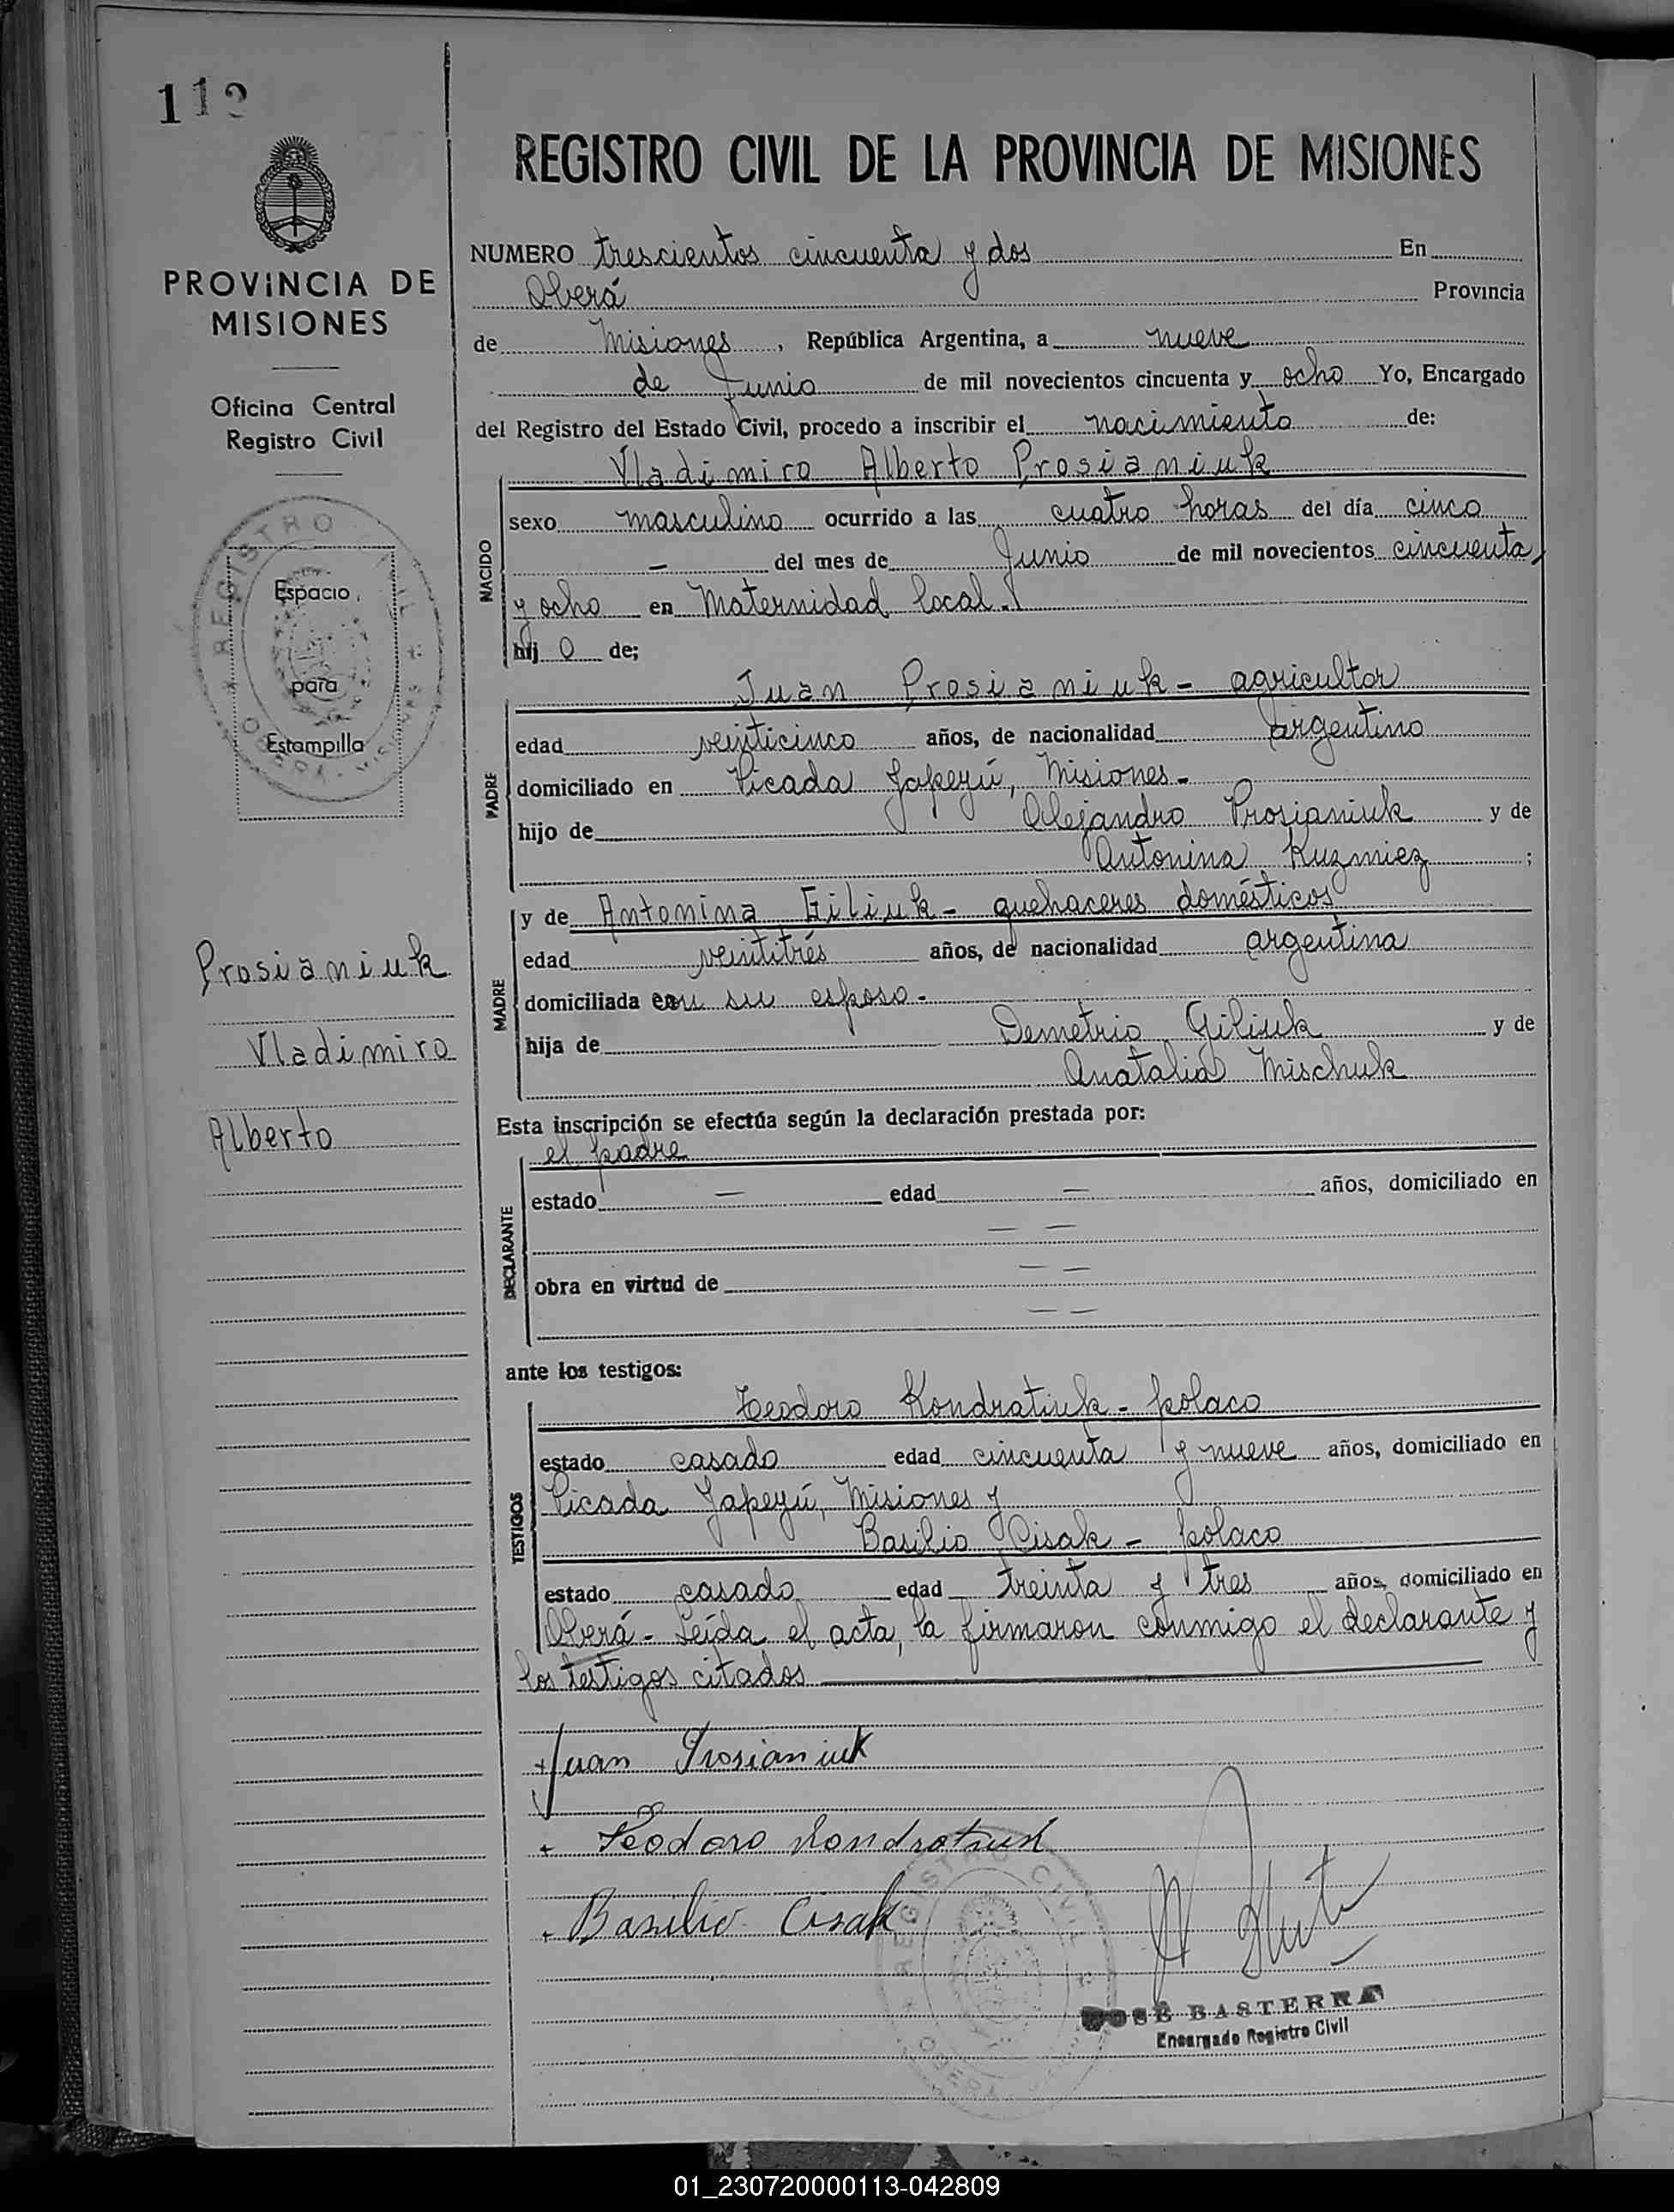 112
PROVINCIA DE
MISIONES
Oficina Central
Registro Civil
REGISTRO
Espacio
para
Estampilla
Prosianiuk
Vladimiro
Alberto
REGISTRO CIVIL DE LA PROVINCIA DE MISIONES
NUMERO trescientos cincuenta y dos En
Oberá Provincia
de Misiones, República Argentina, a nueve
de Junio de mil novecientos cincuenta y ocho Yo, Encargado
del Registro del Estado Civil, procedo a inscribir el nacimiento de:
Vladimiro Alberto Prosianiuk
NACIDO
sexo masculino ocurrido a las cuatro horas del día cinco
— del mes de Junio de mil novecientos cincuenta
y ocho en Maternidad local.
hij o de;
Juan Prosianiuk - agricultor
PADRE
edad veinticinco años, de nacionalidad argentino
domiciliado en Picada Yapeyú, Misiones -
hijo de Alejandro Prosianiuk y de
Antonina Kuzmiez ;
MADRE
y de Antonina Giliuk - quehaceres domésticos
edad veintitrés años, de nacionalidad argentina
domiciliada con su esposo -
hija de Demetrio Giliuk y de
Anatalia Mischuk
Esta inscripción se efectúa según la declaración prestada por:
DECLARANTE
el padre
estado — edad — años, domiciliado en
— —
obra en virtud de — —
— —
ante los testigos:
TESTIGOS
Teodoro Kondratiuk - polaco
estado casado edad cincuenta y nueve años, domiciliado en
Picada Yapeyú, Misiones y
Basilio Cisak - polaco
estado casado edad treinta y tres años, domiciliado en
Oberá - Leída el acta, la firmaron conmigo el declarante y
los testigos citados
Juan Prosianiuk
Teodoro Kondratiuk
Basilio Cisak
REGISTRO CIVIL
JOSÉ BASTERRA
Encargado Registro Civil
01_230720000113-042809